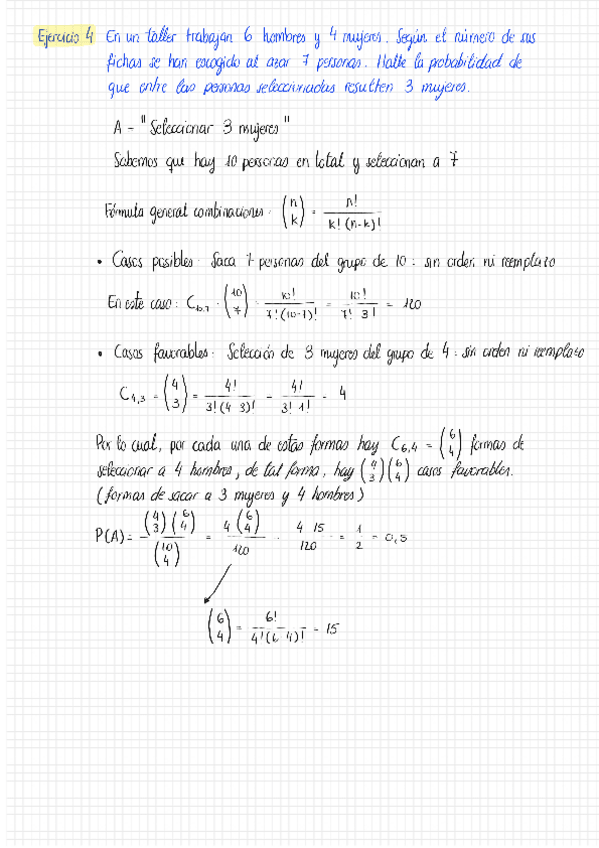 Ejercicio 4 En un taller trabajan 6 hombres y 4 mujeres. Según el número de sus
fichas se han escogido al azar 7 personas. Halle la probabilidad de
que entre las personas seleccionadas resulten 3 mujeres.
A = "Seleccionar 3 mujeres"
Sabemos que hay 10 personas en total y seleccionan a 7
Fórmula general combinaciones: (n k) = n! / k!(n-k)!
• Casos posibles: Saca 7 personas del grupo de 10: sin orden ni reemplazo
En este caso: C₆,₇ = (10 7) = 10! / 7!(10-7)! = 10! / 7! 3! = 120
• Casos favorables: Selección de 3 mujeres del grupo de 4: sin orden ni reemplazo
C₄,₃ = (4 3) = 4! / 3!(4-3)! = 4! / 3! 1! = 4
Por lo cual, por cada una de estas formas hay C₆,₄ = (6 4) formas de
seleccionar a 4 hombres, de tal forma, hay (4 3)(6 4) casos favorables.
(formas de sacar a 3 mujeres y 4 hombres)
P(A) = (4 3)(6 4) / (10 4) = 4 (6 4) / 120 = 4·15 / 120 = 1 / 2 = 0,5
(6 4) = 6! / 4!(6-4)! = 15